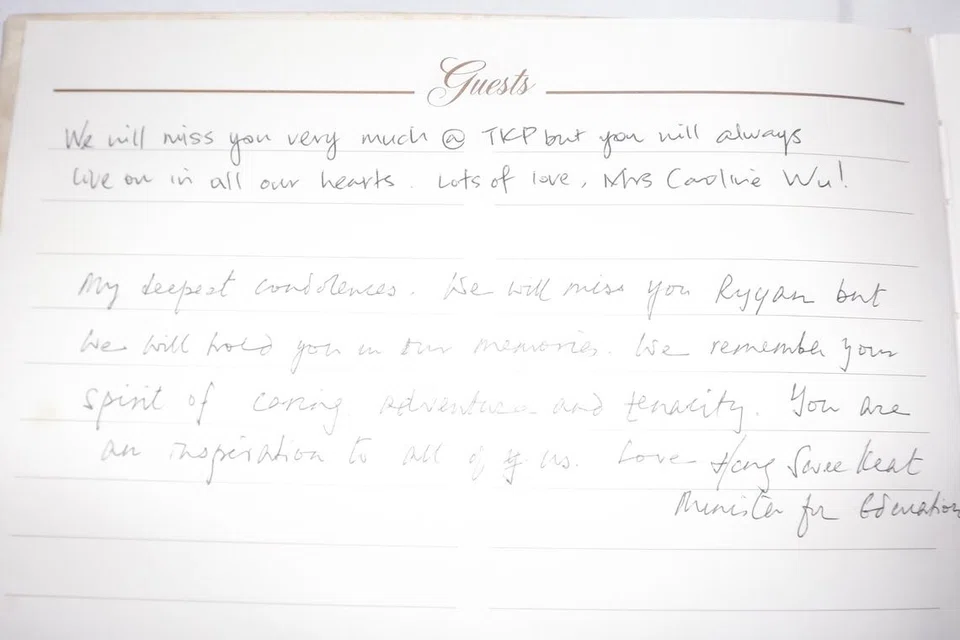 Guests
We will miss you very much @ TKP but you will always
live on in all our hearts. Lots of love, Mrs Caroline Wu!
My deepest condolences. We will miss you Rygan but
we will hold you in our memories. We remember your
spirit of caring, adventure and tenacity. You are
an inspiration to all of us. Love Heng Swee Keat
Minister for Education